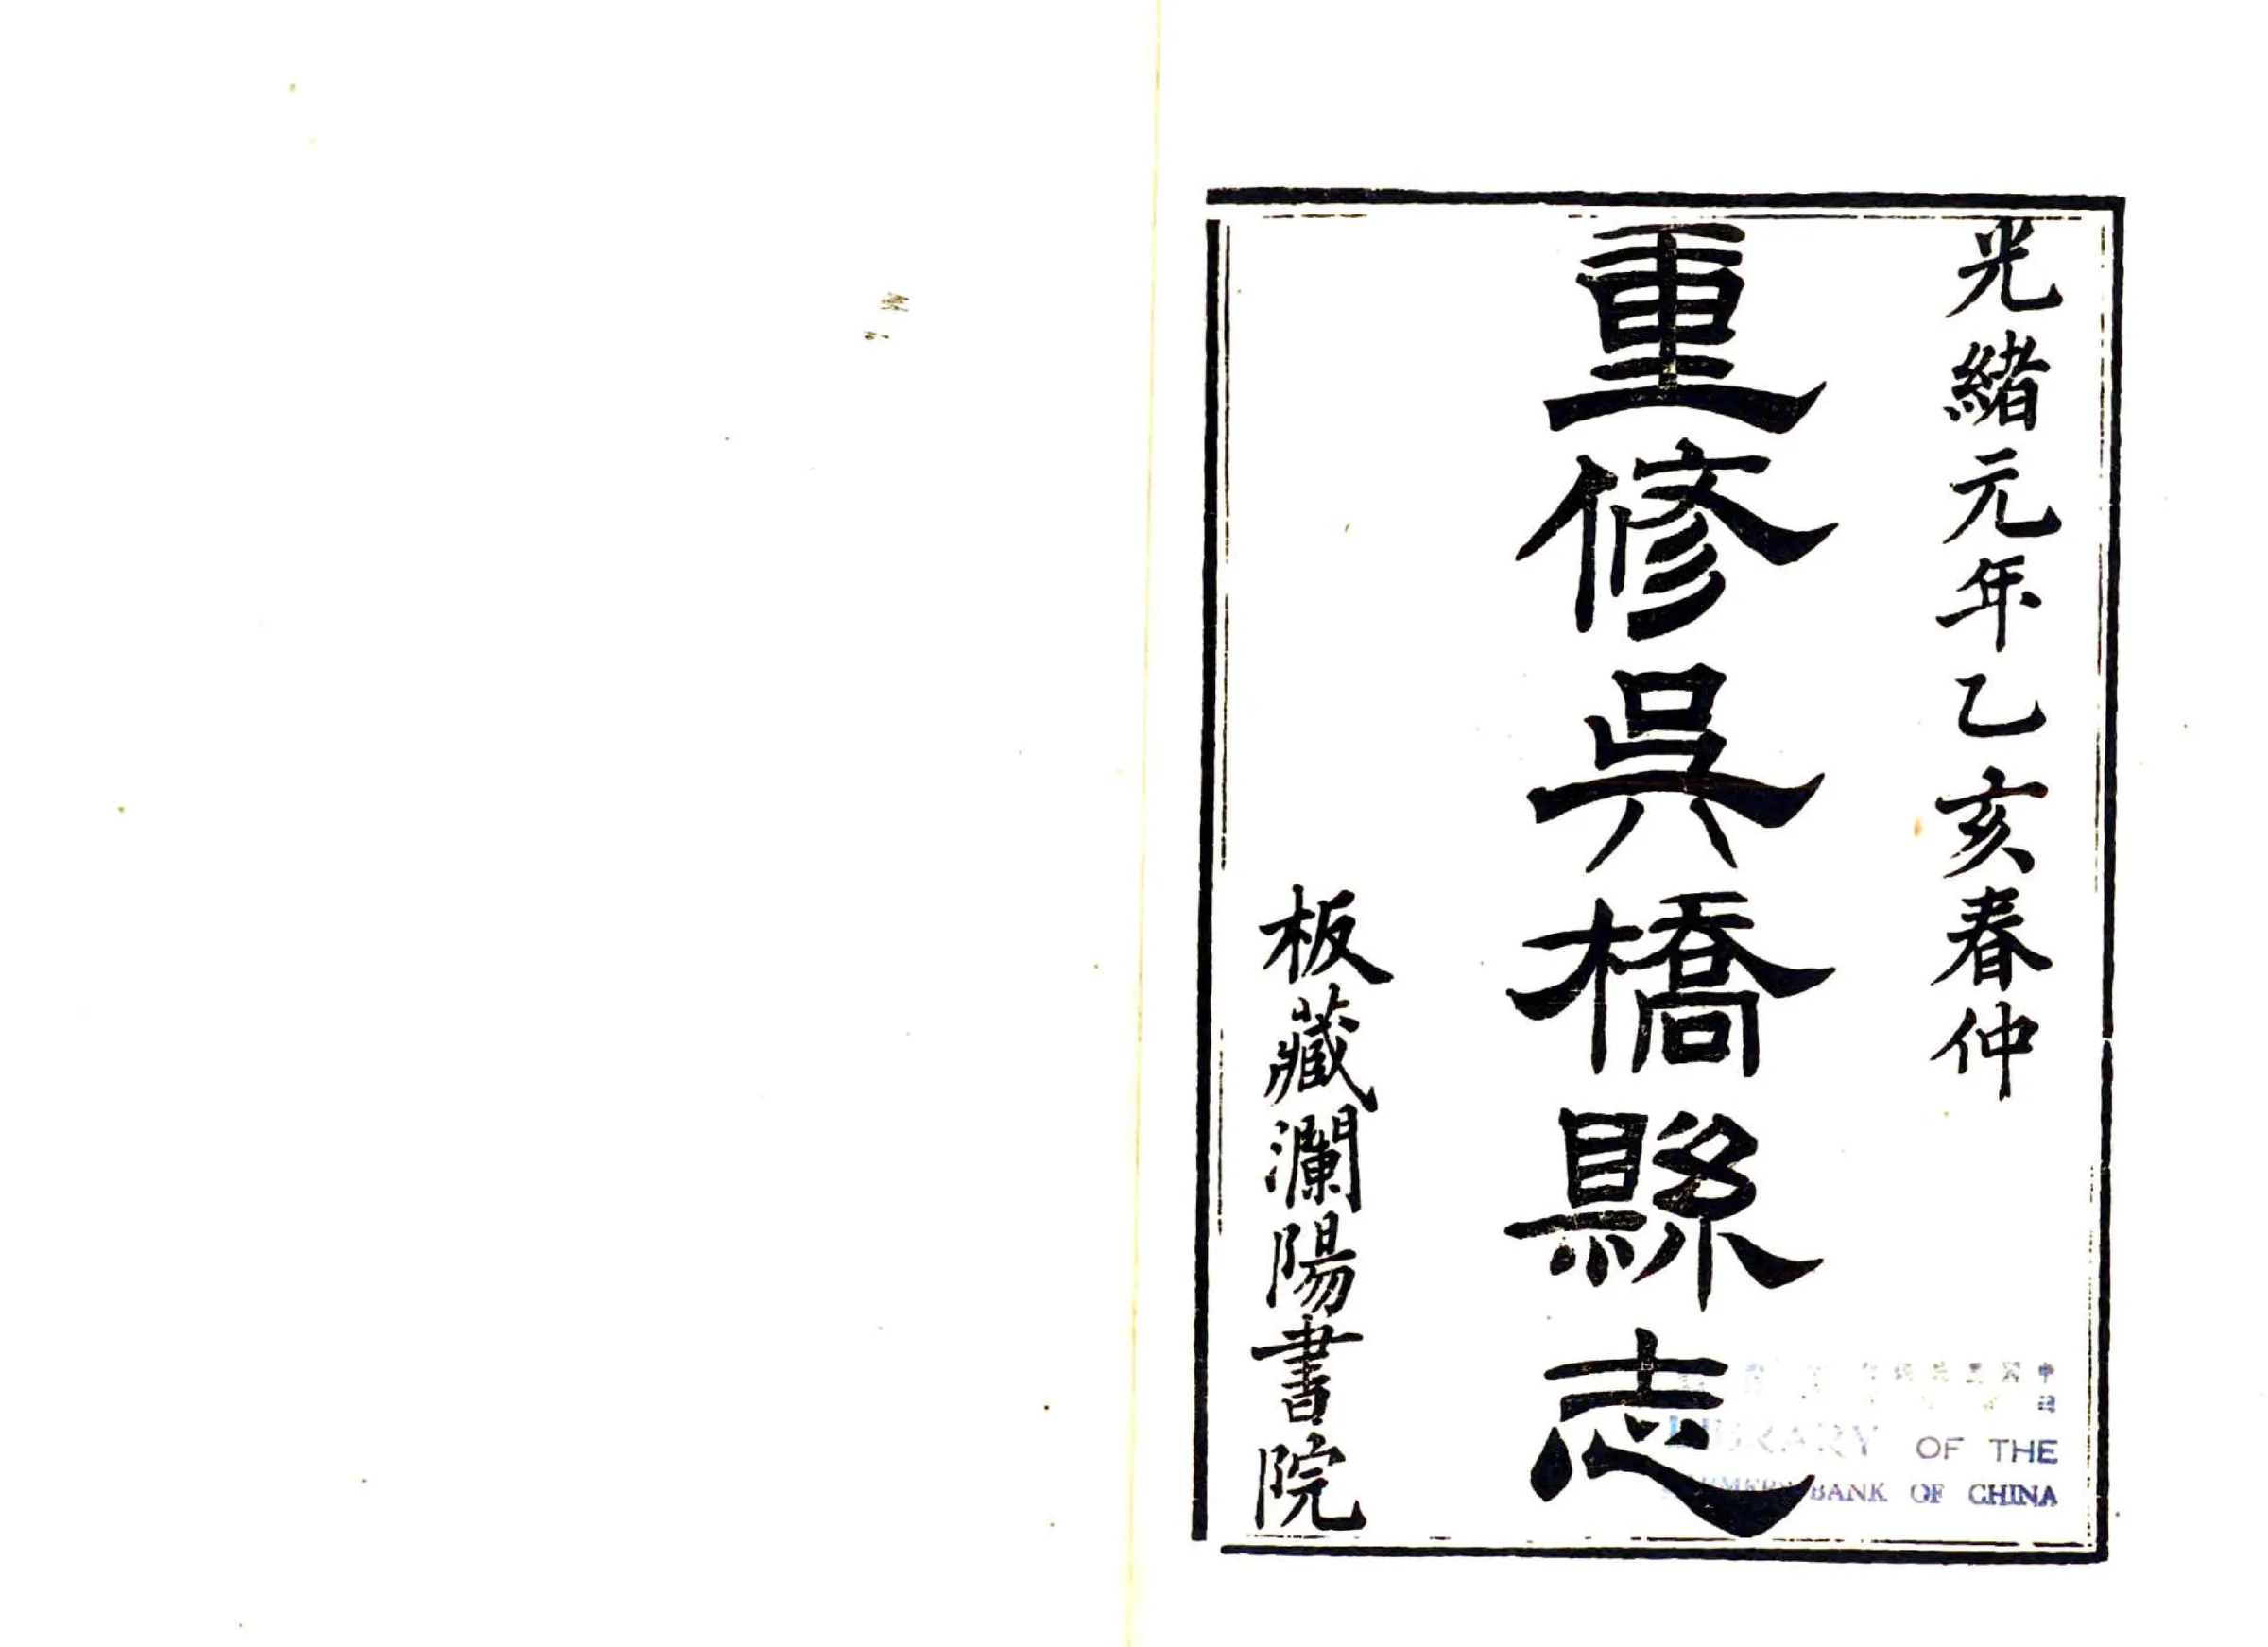 光緒元年乙亥春仲
重修吳橋縣志
板藏瀾陽書院
LIBRARY OF THE
BANK OF CHINA